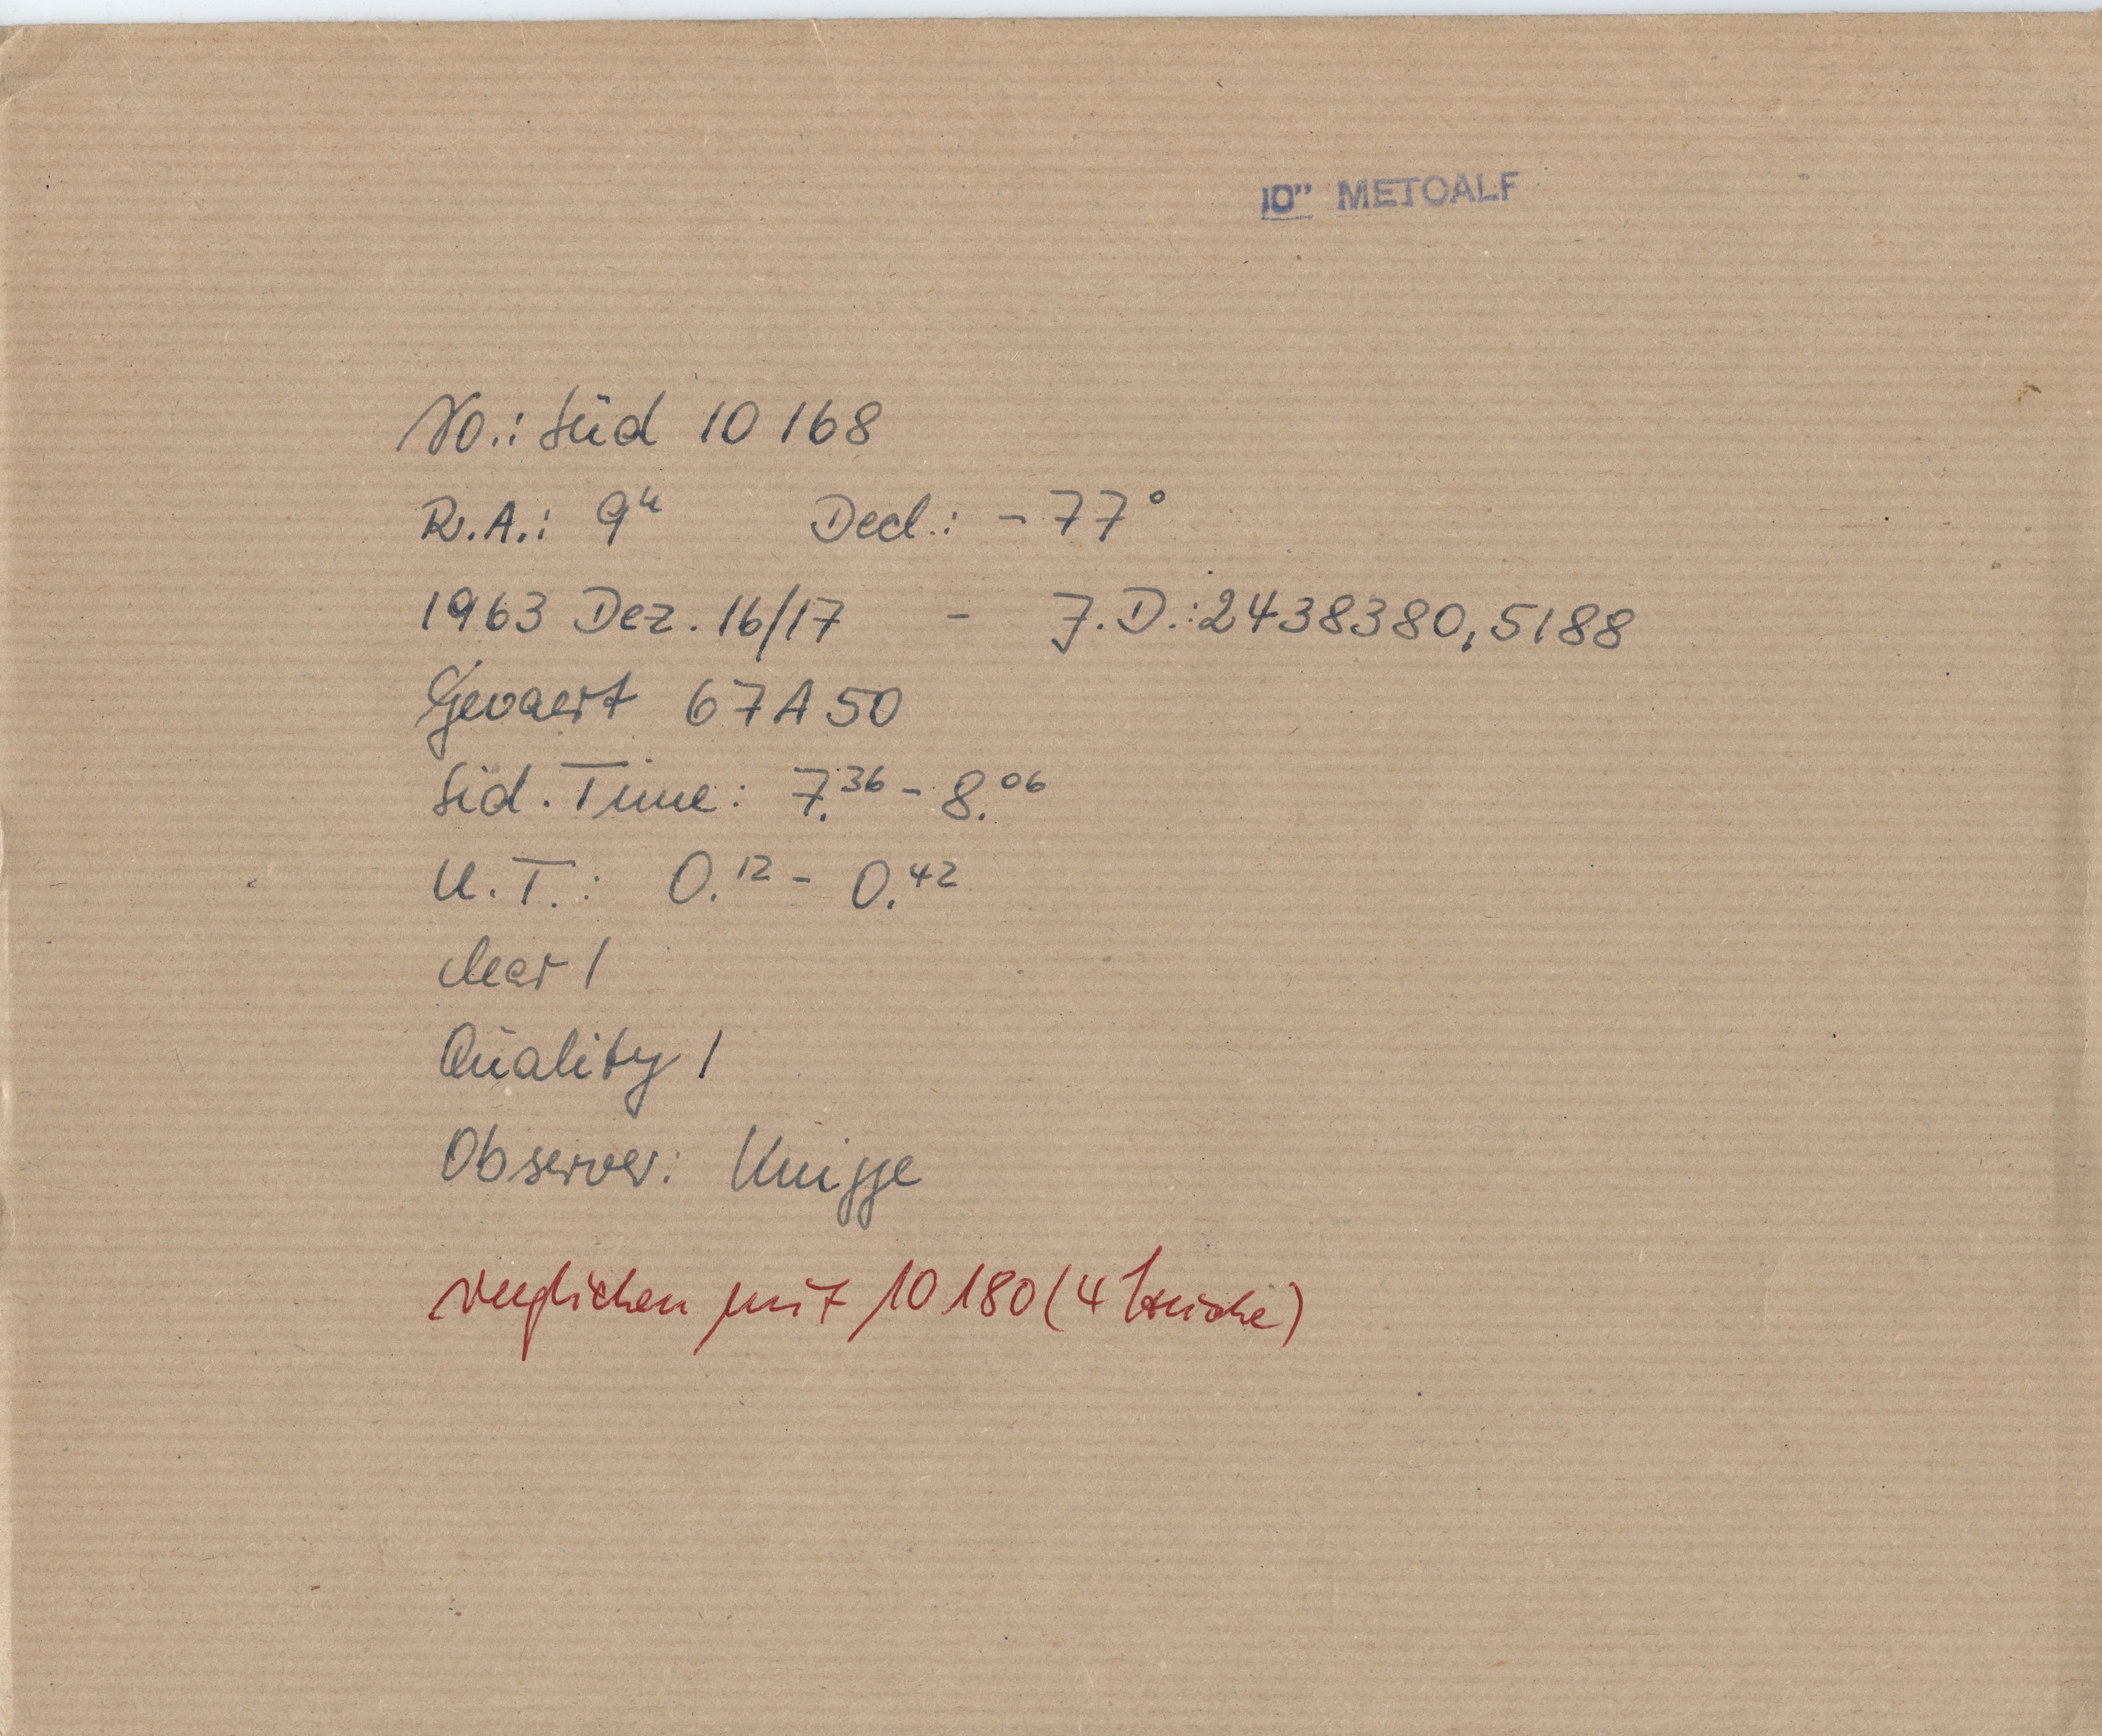 10" METCALF
No.: Süd 10 168
R.A.: 9h Decl.: - 77°
1963 Dez. 16/17 - J.D.: 2438380,5188
Gevaert 67A50
Sid. Time: 7.36 - 8.06
U.T.: 0.12 - 0.42
clear 1
Quality 1
Observer: Knigge
verglichen mit 10 180 (4 Striche)